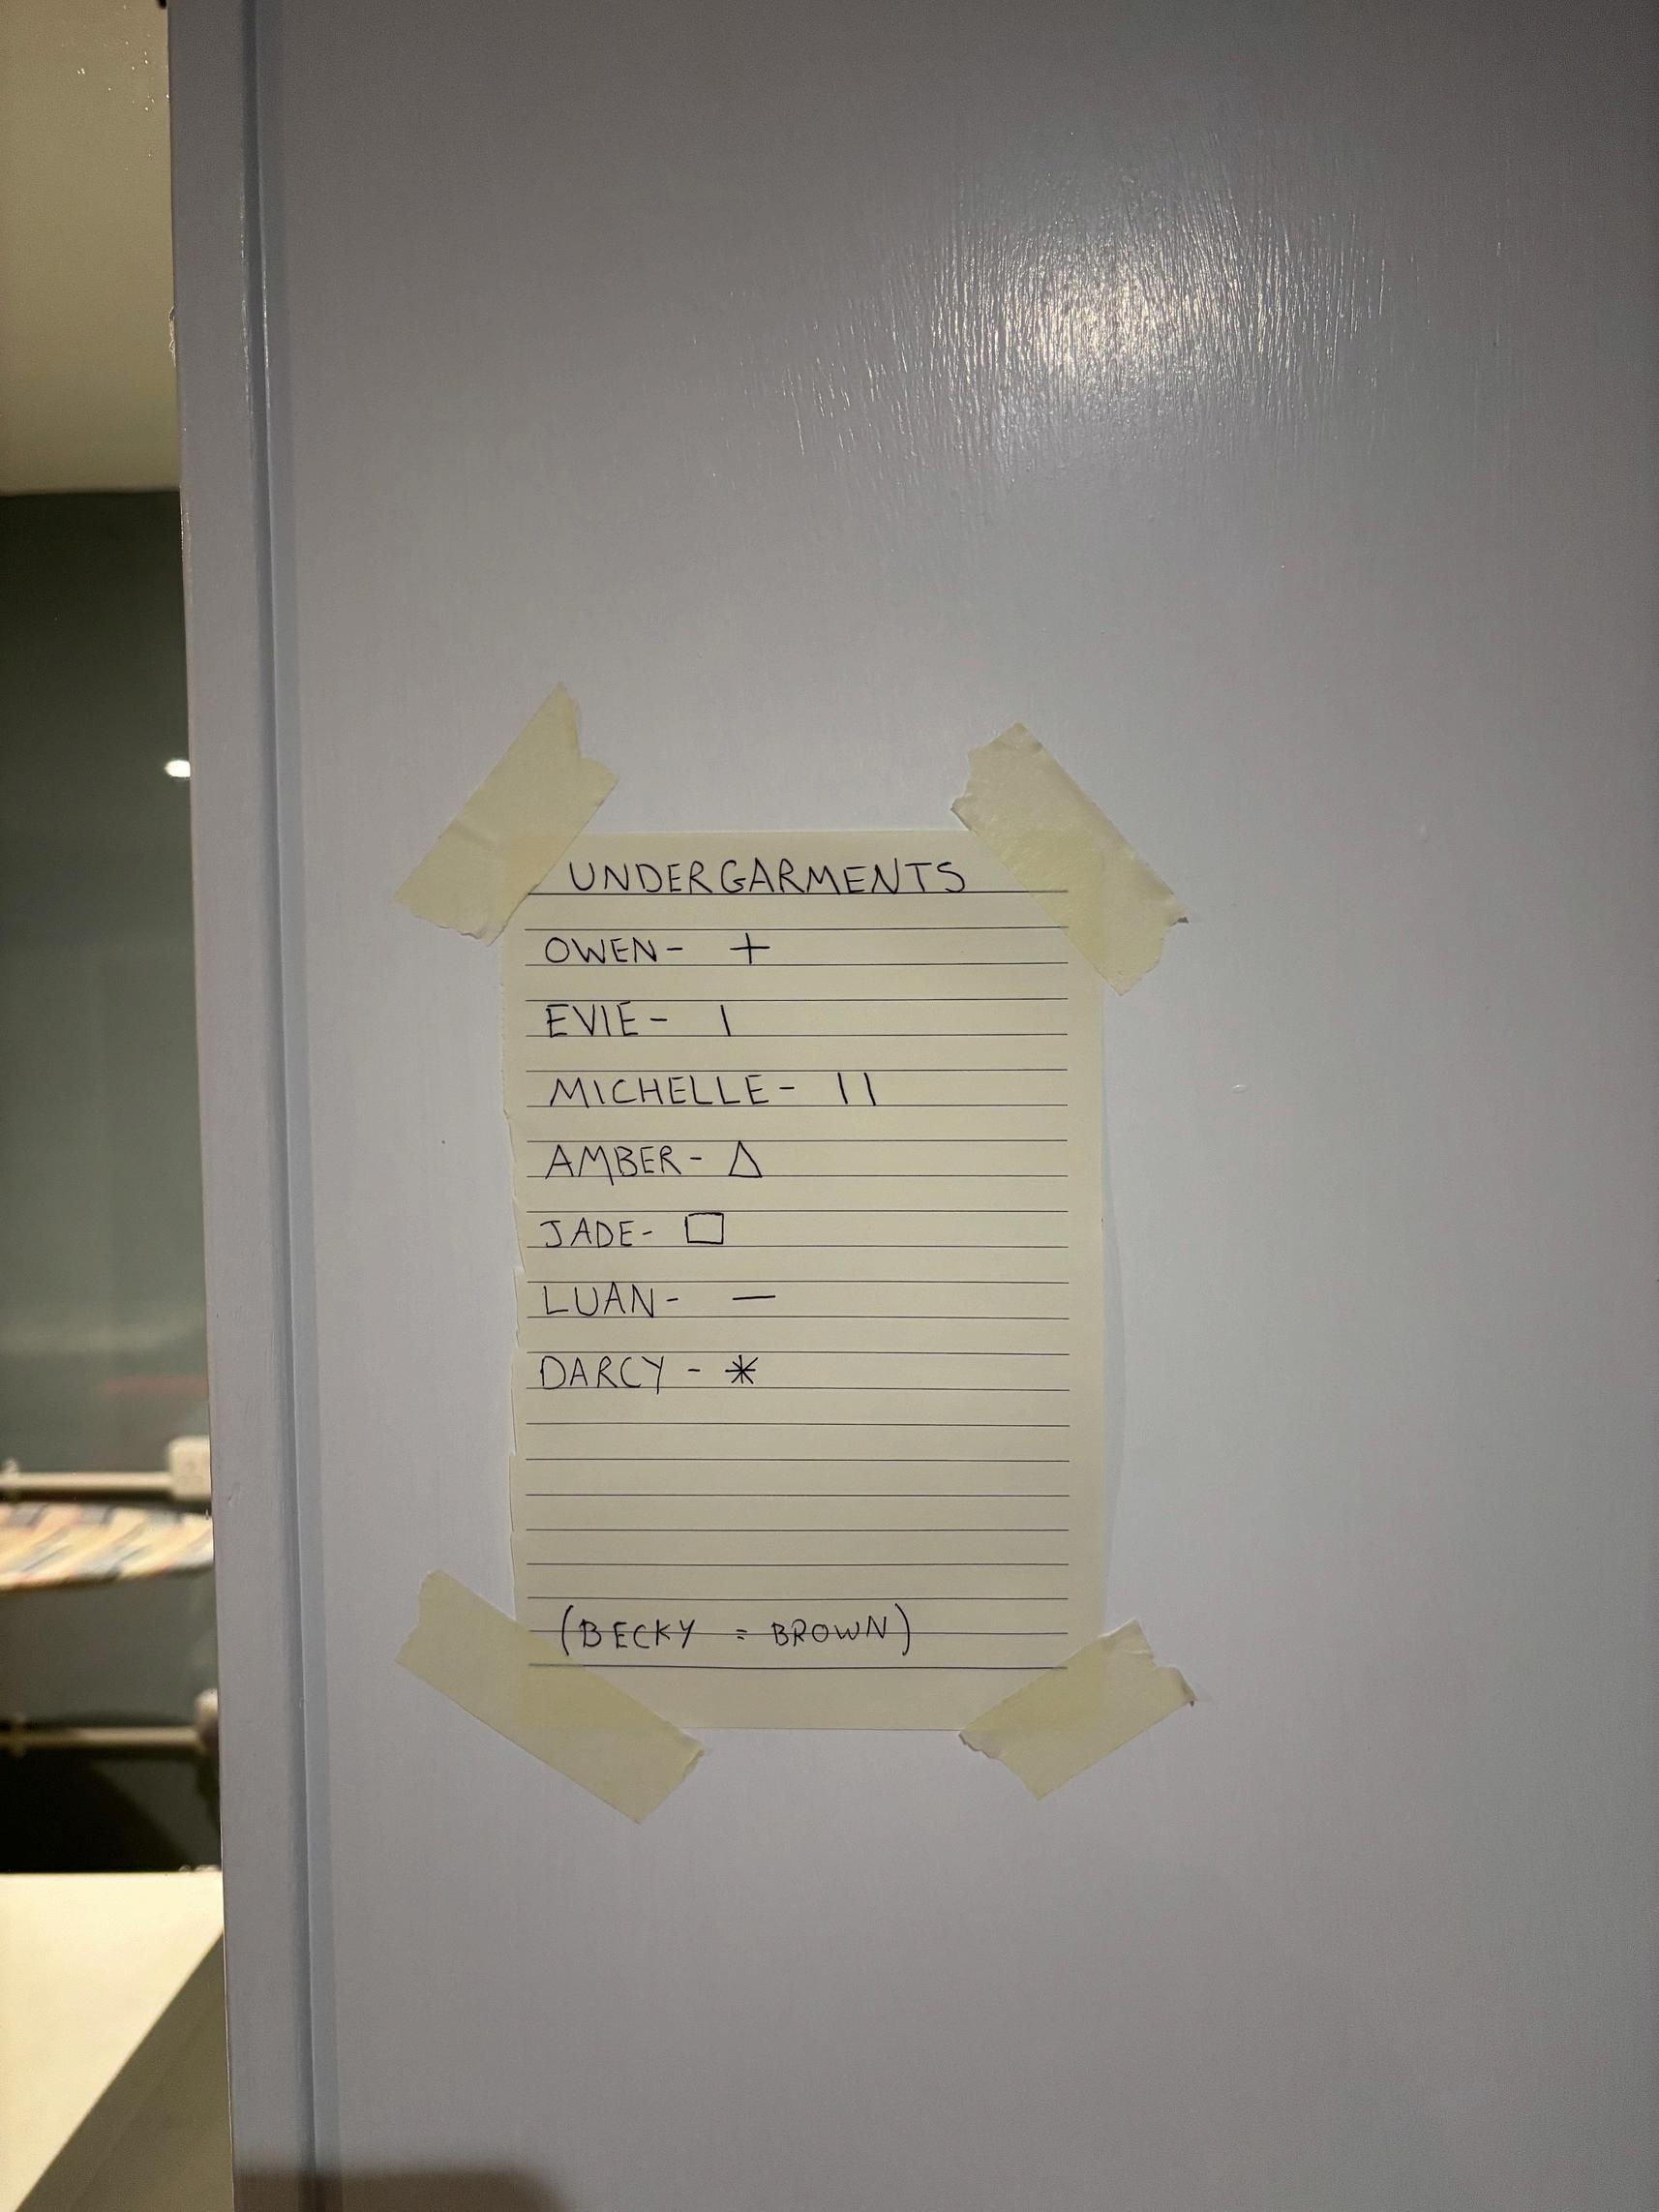 UNDERGARMENTS
OWEN- +
EVIE- |
MICHELLE- ||
AMBER- △
JADE- □
LUAN- —
DARCY - *
(BECKY = BROWN)